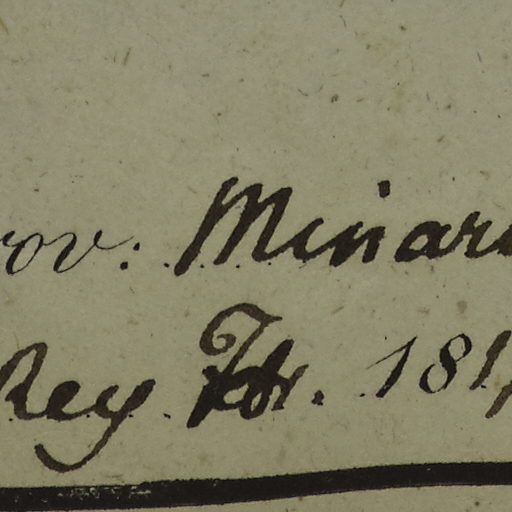 rov: Minar
Rey Febr. 181